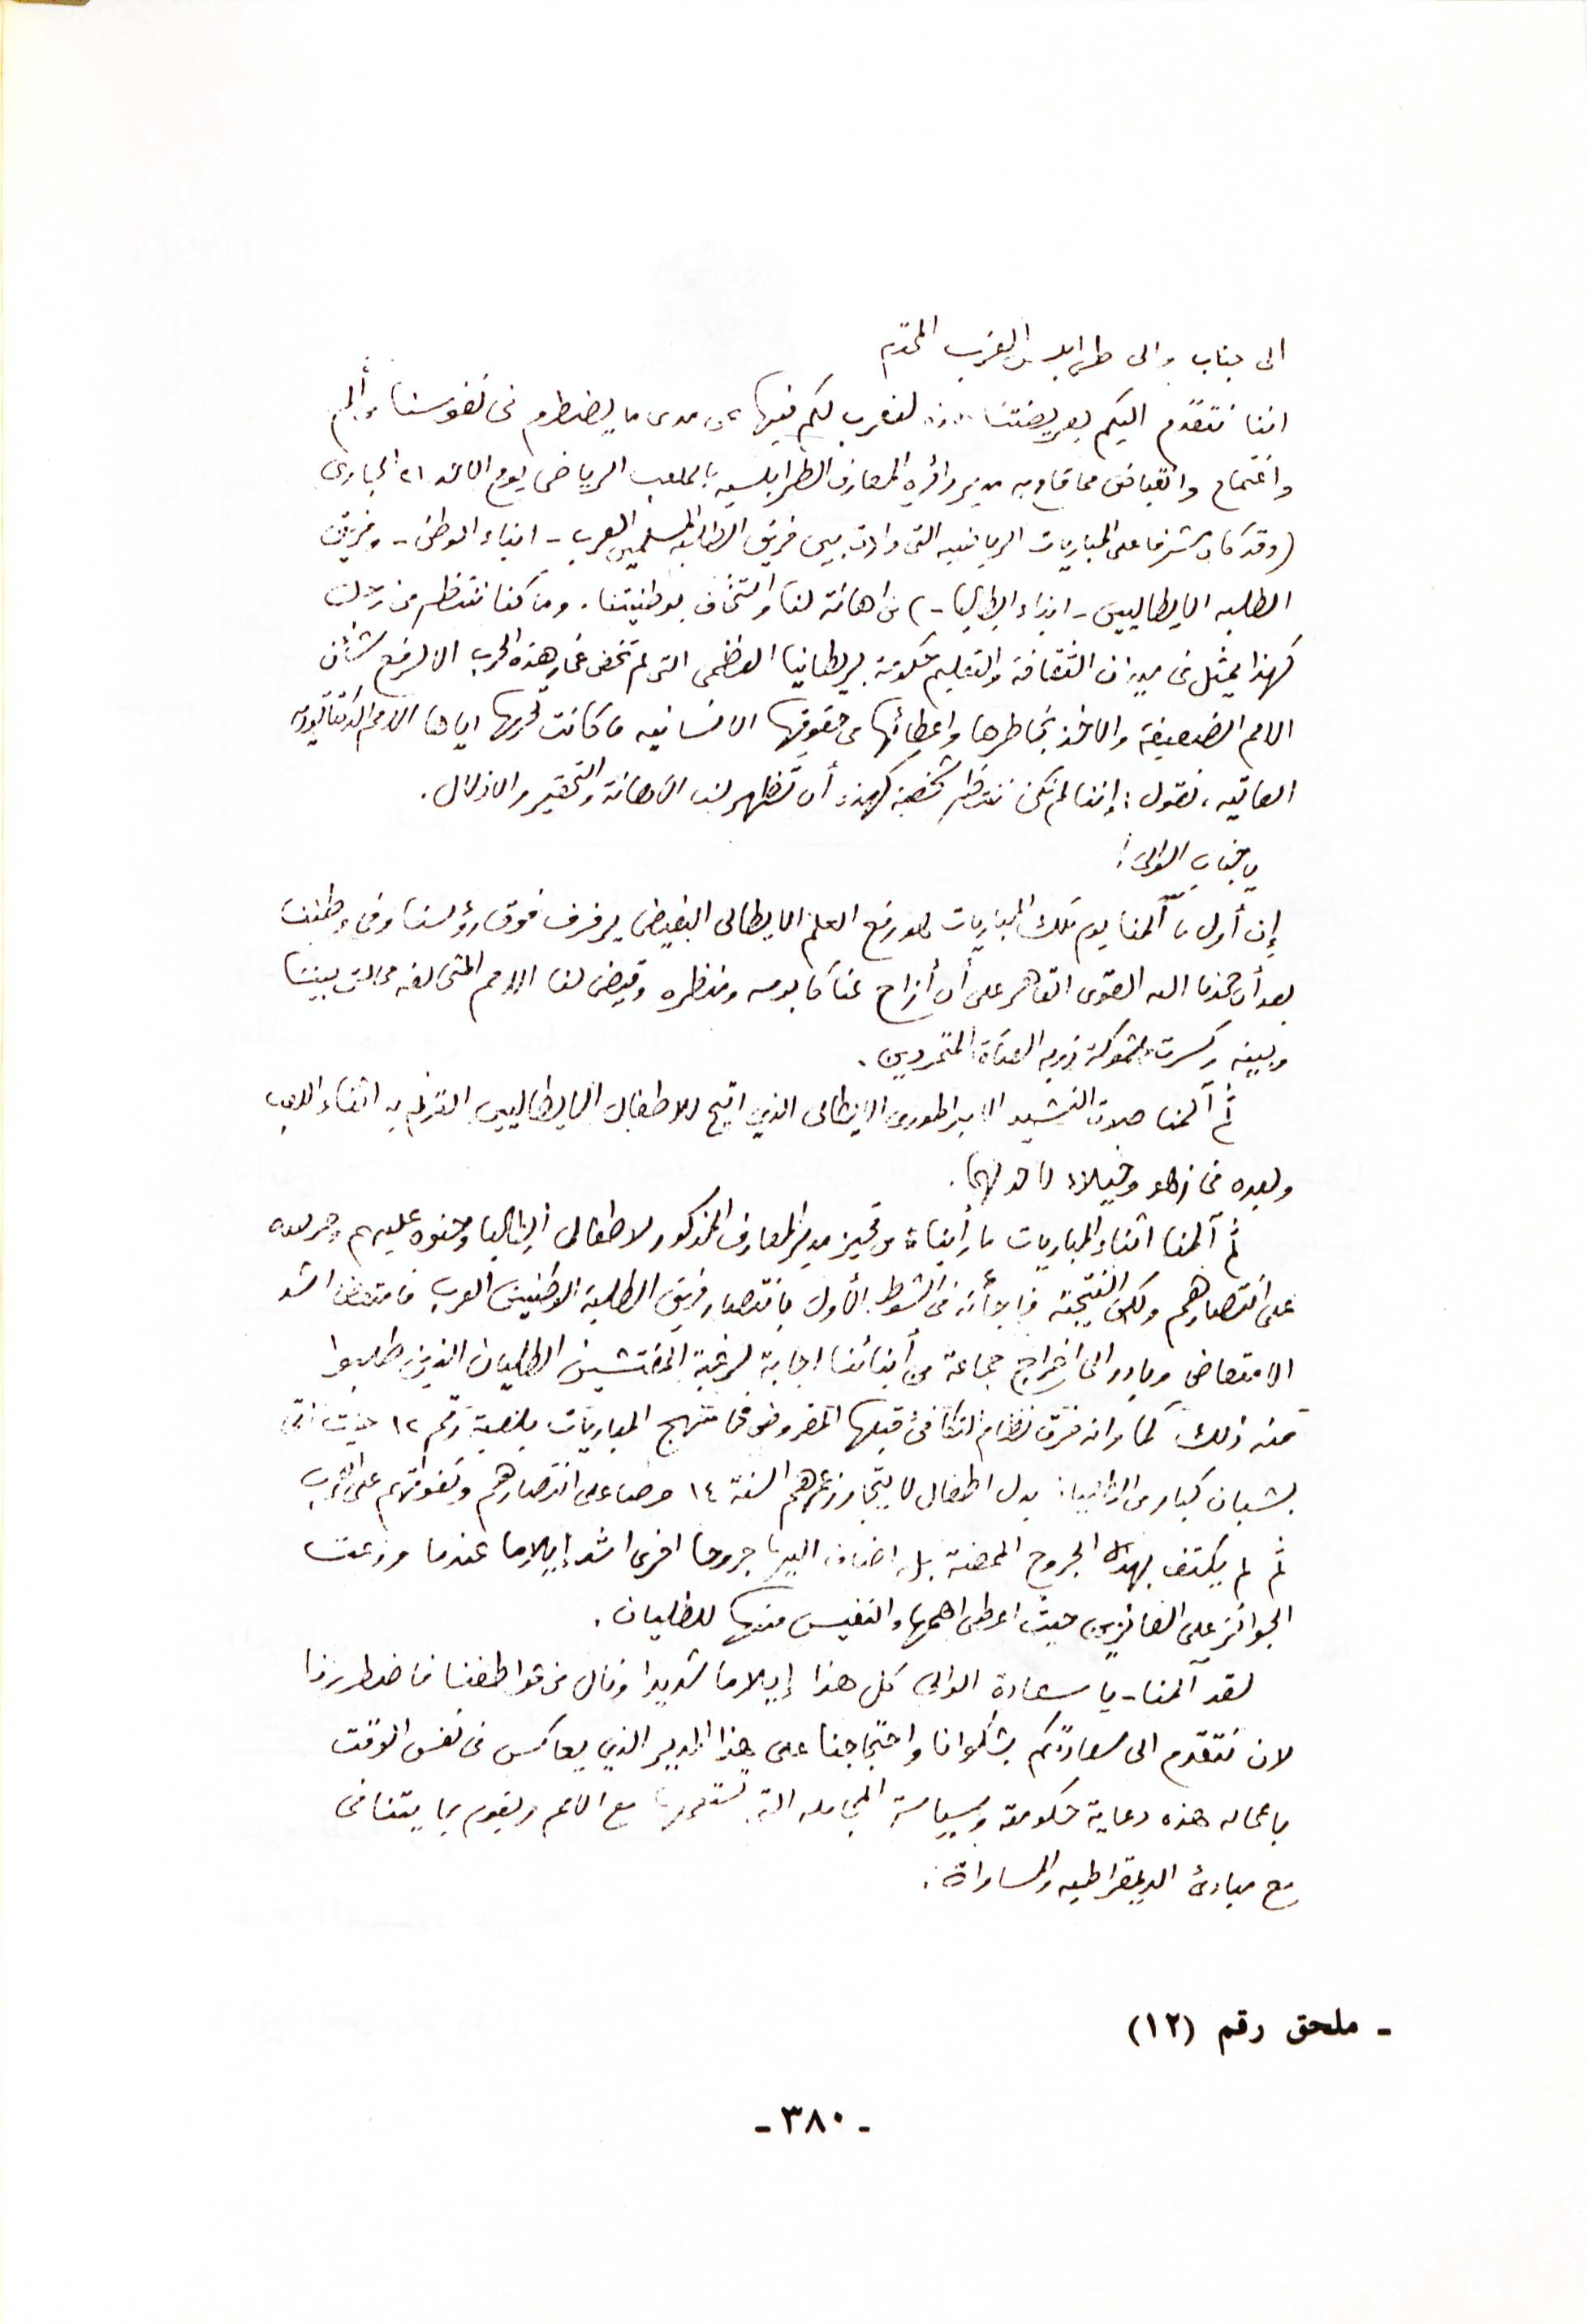 الى جناب والى طرابلس الغرب المحترم
اننا نتقدم اليكم بعريضتنا هذه لنعرب لكم فيها عن مدى ما يضطرم فى نفوسنا من ألم
واغتمام وانقباض مما قام به مدير دائرة المعارف الطرابلسيه بالملعب الرياضى يوم الاحد ٢١ الجارى
(وقد كان مشرفا على المباريات الرياضيه التى دارت بين فريق الطلبه المسلمين العرب - ابناء الوطن - وفريق
الطلبه الايطاليين - ابناء ايطاليا -) من اهانة لنا واستخفاف بوطنيتنا. وما كنا ننتظر من رجل
كهذا يمثل فى ميدان الثقافة والتعليم حكومة بريطانيا العظمى التى لم تخض غمار هذه الحرب الا لرفع شأن
الامم الضعيفة والاخذ بخاطرها واعطائها من حقوقها الانسانيه ما كانت تحرمها اياها الامم الدكتاتوريه
العاتيه، نقول: إننا لم نكن ننتظر من شخصية كهذه أن تظهر لنا الاهانة والتحقير والاذلال.
يا جناب الوالى!
إن أول ما آلمنا يوم تلك المباريات هو رفع العلم الايطالى البغيض يرفرف فوق رؤوسنا وفى وطننا
بعد أن حمدنا الله القوى القاهر على أن أزاح عنا كابوسه ومنظره وقيض لنا الامم المتحالفه فحالت بيننا
وبينه وكسرت شوكة ذويه العتاة المتمردين.
ثم آلمنا صلات النشيد الامبراطورى الايطالى الذي اتيح للاطفال الايطاليين الترنم به اثناء اللعب
وبعده فى زهو وخيلاء لا حد لهما.
ثم آلمنا اثناء المباريات ما رأيناه من تحيز مدير المعارف المذكور لاطفال ايطاليا وحنوه عليهم وحرصه
على انتصارهم ولكن النتيجة فاجأته فى الشوط الأول بانتصار فريق الطلبة الوطنيين العرب فامتعض اشد
الامتعاض وبادر الى اخراج جماعة من أبنائنا اجابة لرغبة المفتشين الطليان الذين طلبوا
منه ذلك كما وانه خرق نظام التكافئ قبلها المفروض فى منهج المباريات بلعبة رقم ١٢ حيث اتى
بشبان كبار من الطليان بدل اطفال لا يتجاوز عمرهم السنة ١٤ حرصا على انتصارهم وتفوقهم على العرب
ثم لم يكتف بهذه الجروح الممضة بل اضاف اليها جروحا اخرى اشد إيلاما عندما وزعت
الجوائز على الفائزين حيث اعطى اهمها والنفيس منها للطليان.
لقد آلمنا - يا سعادة الوالى كل هذا إيلاما شديدا ونال من عواطفنا فاضطررنا
لان نتقدم الى سعادتكم بشكوانا واحتجاجنا على هذا المدير الذي يعاكس فى نفس الوقت
باعماله هذه دعاية حكومته وسياسة المجامله التى تستعملها مع الامم ويقوم بما يتنافى
مع مبادئ الديمقراطيه والمساواة.
- ملحق رقم (١٢)
- ٣٨٠ -